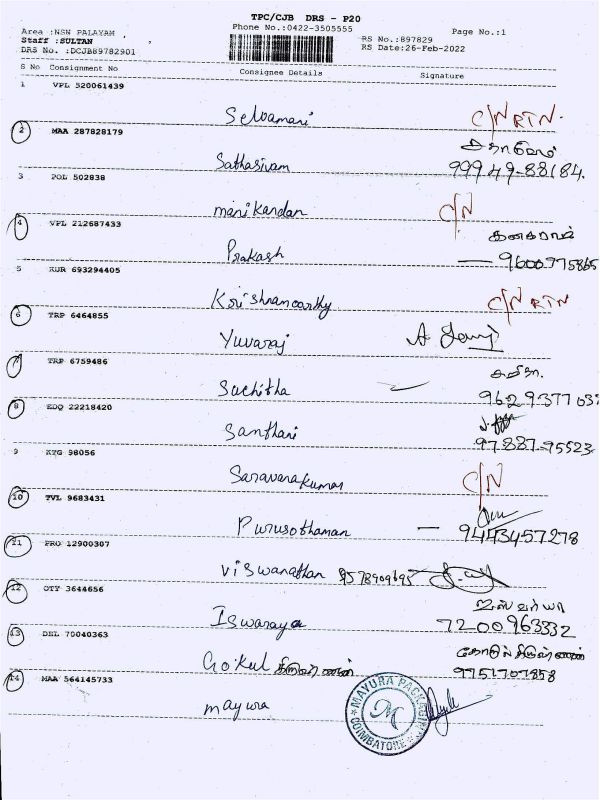 TPC/CJB DRS - P20
Area :NSN PALAYAM , ,
Phone No.:0422-3505555
Page No.:1
Staff :SULTAN
RS No.:897829
DRS No. :DCJB89782901
RS Date:26-Feb-2022
S No Consignment No Consignee Details Signature
1 VPL 520061439
Selvamani C/N RTN.
2 MAA 287828179
Sathasivam 99949-88184.
3 POL 502838
manikandan C/N
4 VPL 212687433
Prakash — 9600775865
5 KUR 693294405
Krishnamoorthy C/N RTN
6 TRP 6464855
Yuvaraj
7 TRP 6759486
Suchitha 9629377037
8 EDQ 22218420
Santhani 97887-95523
9 KTG 98056
Saravanakumar C/N
10 TVL 9683431
Purusothaman — 9443457278
11 PRO 12900307
Viswanathan 9578909695
12 OTY 3644656
ஐஸ்வர்யா
Iswaraya 7200963332
13 DEL 70040363
Gokul 9751707858
14 MAA 564145733
mayura
MAYURA PACK
M
COIMBATORE